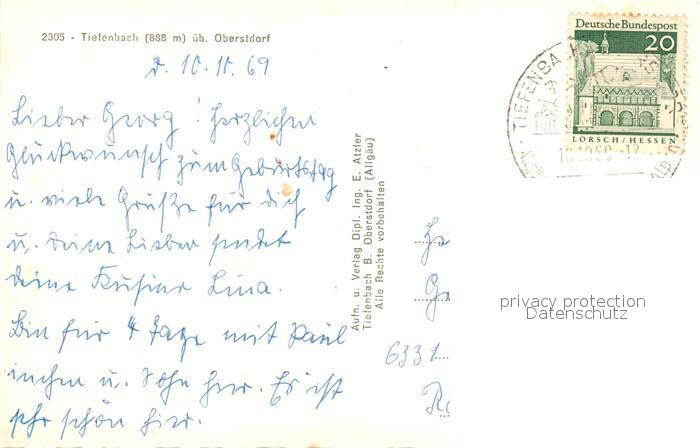 2305 - Tiefenbach (888 m) üb. Oberstdorf
d. 10. 10. 69
Lieber Georg! Herzlichen
Glückwunsch zum Geburtstag
u. viele Grüße für dich
u. deine Lieben sendet
deine Kusine Lina.
Bin für 4 Tage mit Paul
u. Sohn hier. Es ist
sehr schön hier.
Aufn. u. Verlag Dipl. Ing. E. Atzler
Tiefenbach B. Oberstdorf (Allgäu)
Alle Rechte vorbehalten
Deutsche Bundespost
20
LORSCH/HESSEN
TIEFENBACH
6331
privacy protection
Datenschutz